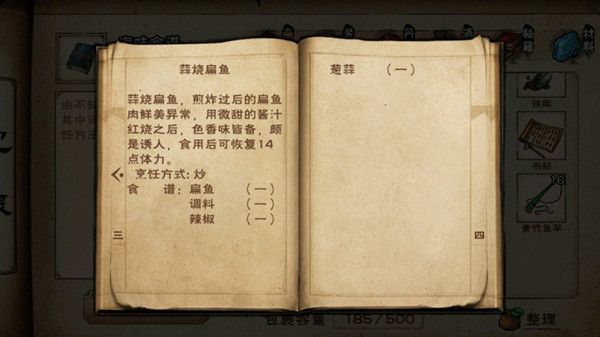 蒜烧扁鱼
蒜烧扁鱼，煎炸过后的扁鱼
肉鲜美异常，用微甜的酱汁
红烧之后，色香味皆备，颇
是诱人，食用后可恢复14
点体力。
烹饪方式：炒
食　谱：扁鱼　（一）
调料　（一）
辣椒　（一）
三
葱蒜　（一）
四
由不知
饪方法
材料
铁锹
书帖
青竹鱼竿
包裹容量 185/500
整理